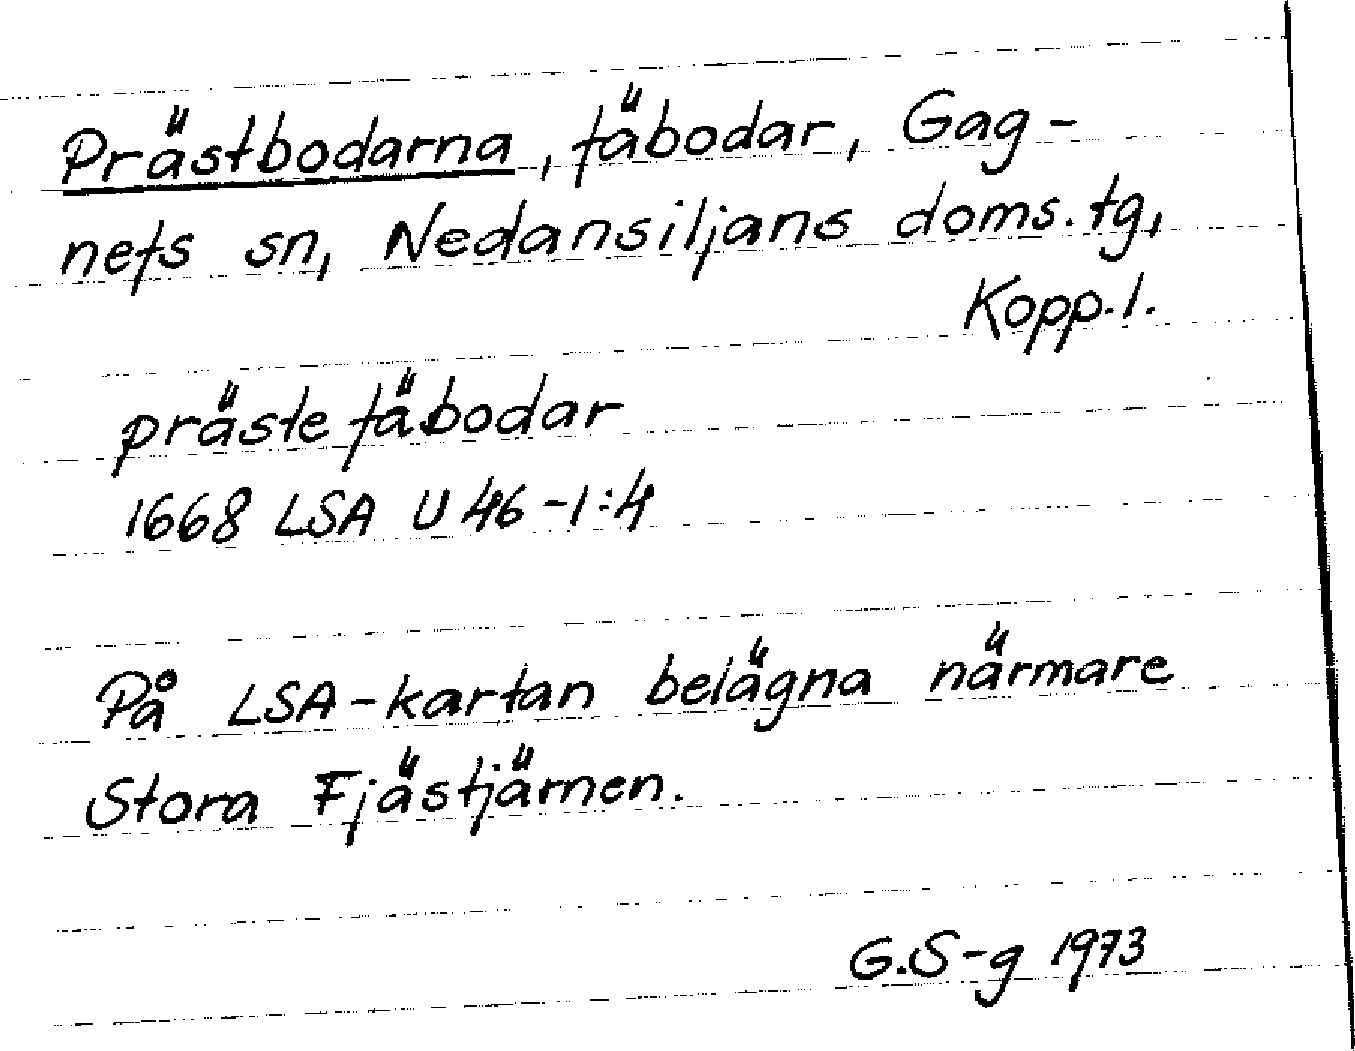 Prästbodarna, fäbodar, Gag-
nefs sn, Nedansiljans doms. tg,
Kopp. l.
präste fäbodar
1668 LSA U 46-1:4
På LSA-kartan belägna närmare
Stora Fjästjärnen.
G.S-g 1973